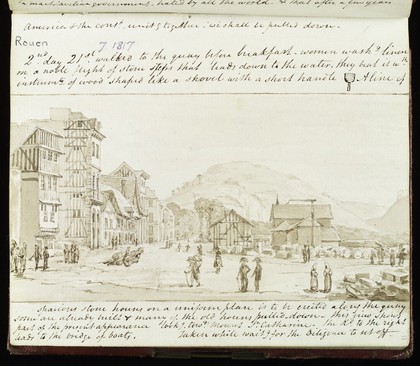 a particular government, hated by all the world. & that after a few years
America & the cont. unit.g together. we shall be pulled down.
Rouen 7 1817
2nd day 21st walked to the quay before breakfast. women wash.g linen
on a noble flight of stone steps that leads down to the water, they beat it wth
instrumts of wood shaped like a shovel with a short handle A line of
spacious stone houses on a uniform plan is to be erected along the quay
some are already built & many of the old houses pulled down. This view shews
part of the present appearance looks towds Mount St. Catharine. The Rd to the right
leads to the bridge of boats. Taken while waitg for the diligence to set off